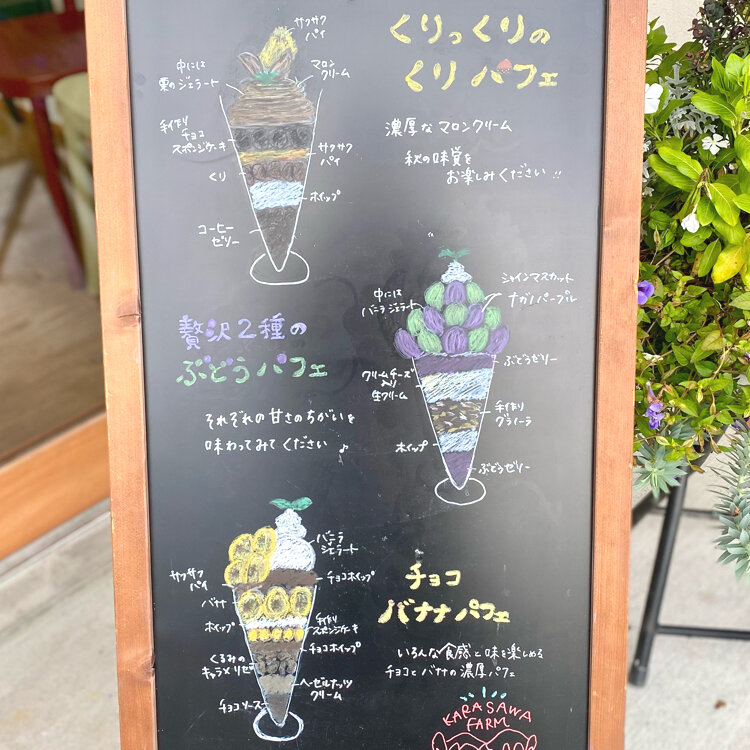 くりっくりの
くりパフェ
濃厚なマロンクリーム
秋の味覚を
お楽しみください!!
サクサク
パイ
中には
栗のジェラート
マロン
クリーム
手作り
チョコ
スポンジケーキ
サクサク
パイ
くり
ホイップ
コーヒー
ゼリー
贅沢2種の
ぶどうパフェ
それぞれの甘さのちがいを
味わってみてください♪
シャインマスカット
ナガノパープル
中には
バニラジェラート
ぶどうゼリー
クリームチーズ
入り
生クリーム
手作り
グラノーラ
ホイップ
ぶどうゼリー
チョコ
バナナパフェ
いろんな食感と味を楽しめる
チョコとバナナの濃厚パフェ
バニラ
ジェラート
サクサク
パイ
チョコホイップ
バナナ
ホイップ
手作り
スポンジケーキ
チョコホイップ
くるみの
キャラメリゼ
ヘーゼルナッツ
クリーム
チョコソース
KARASAWA
FARM